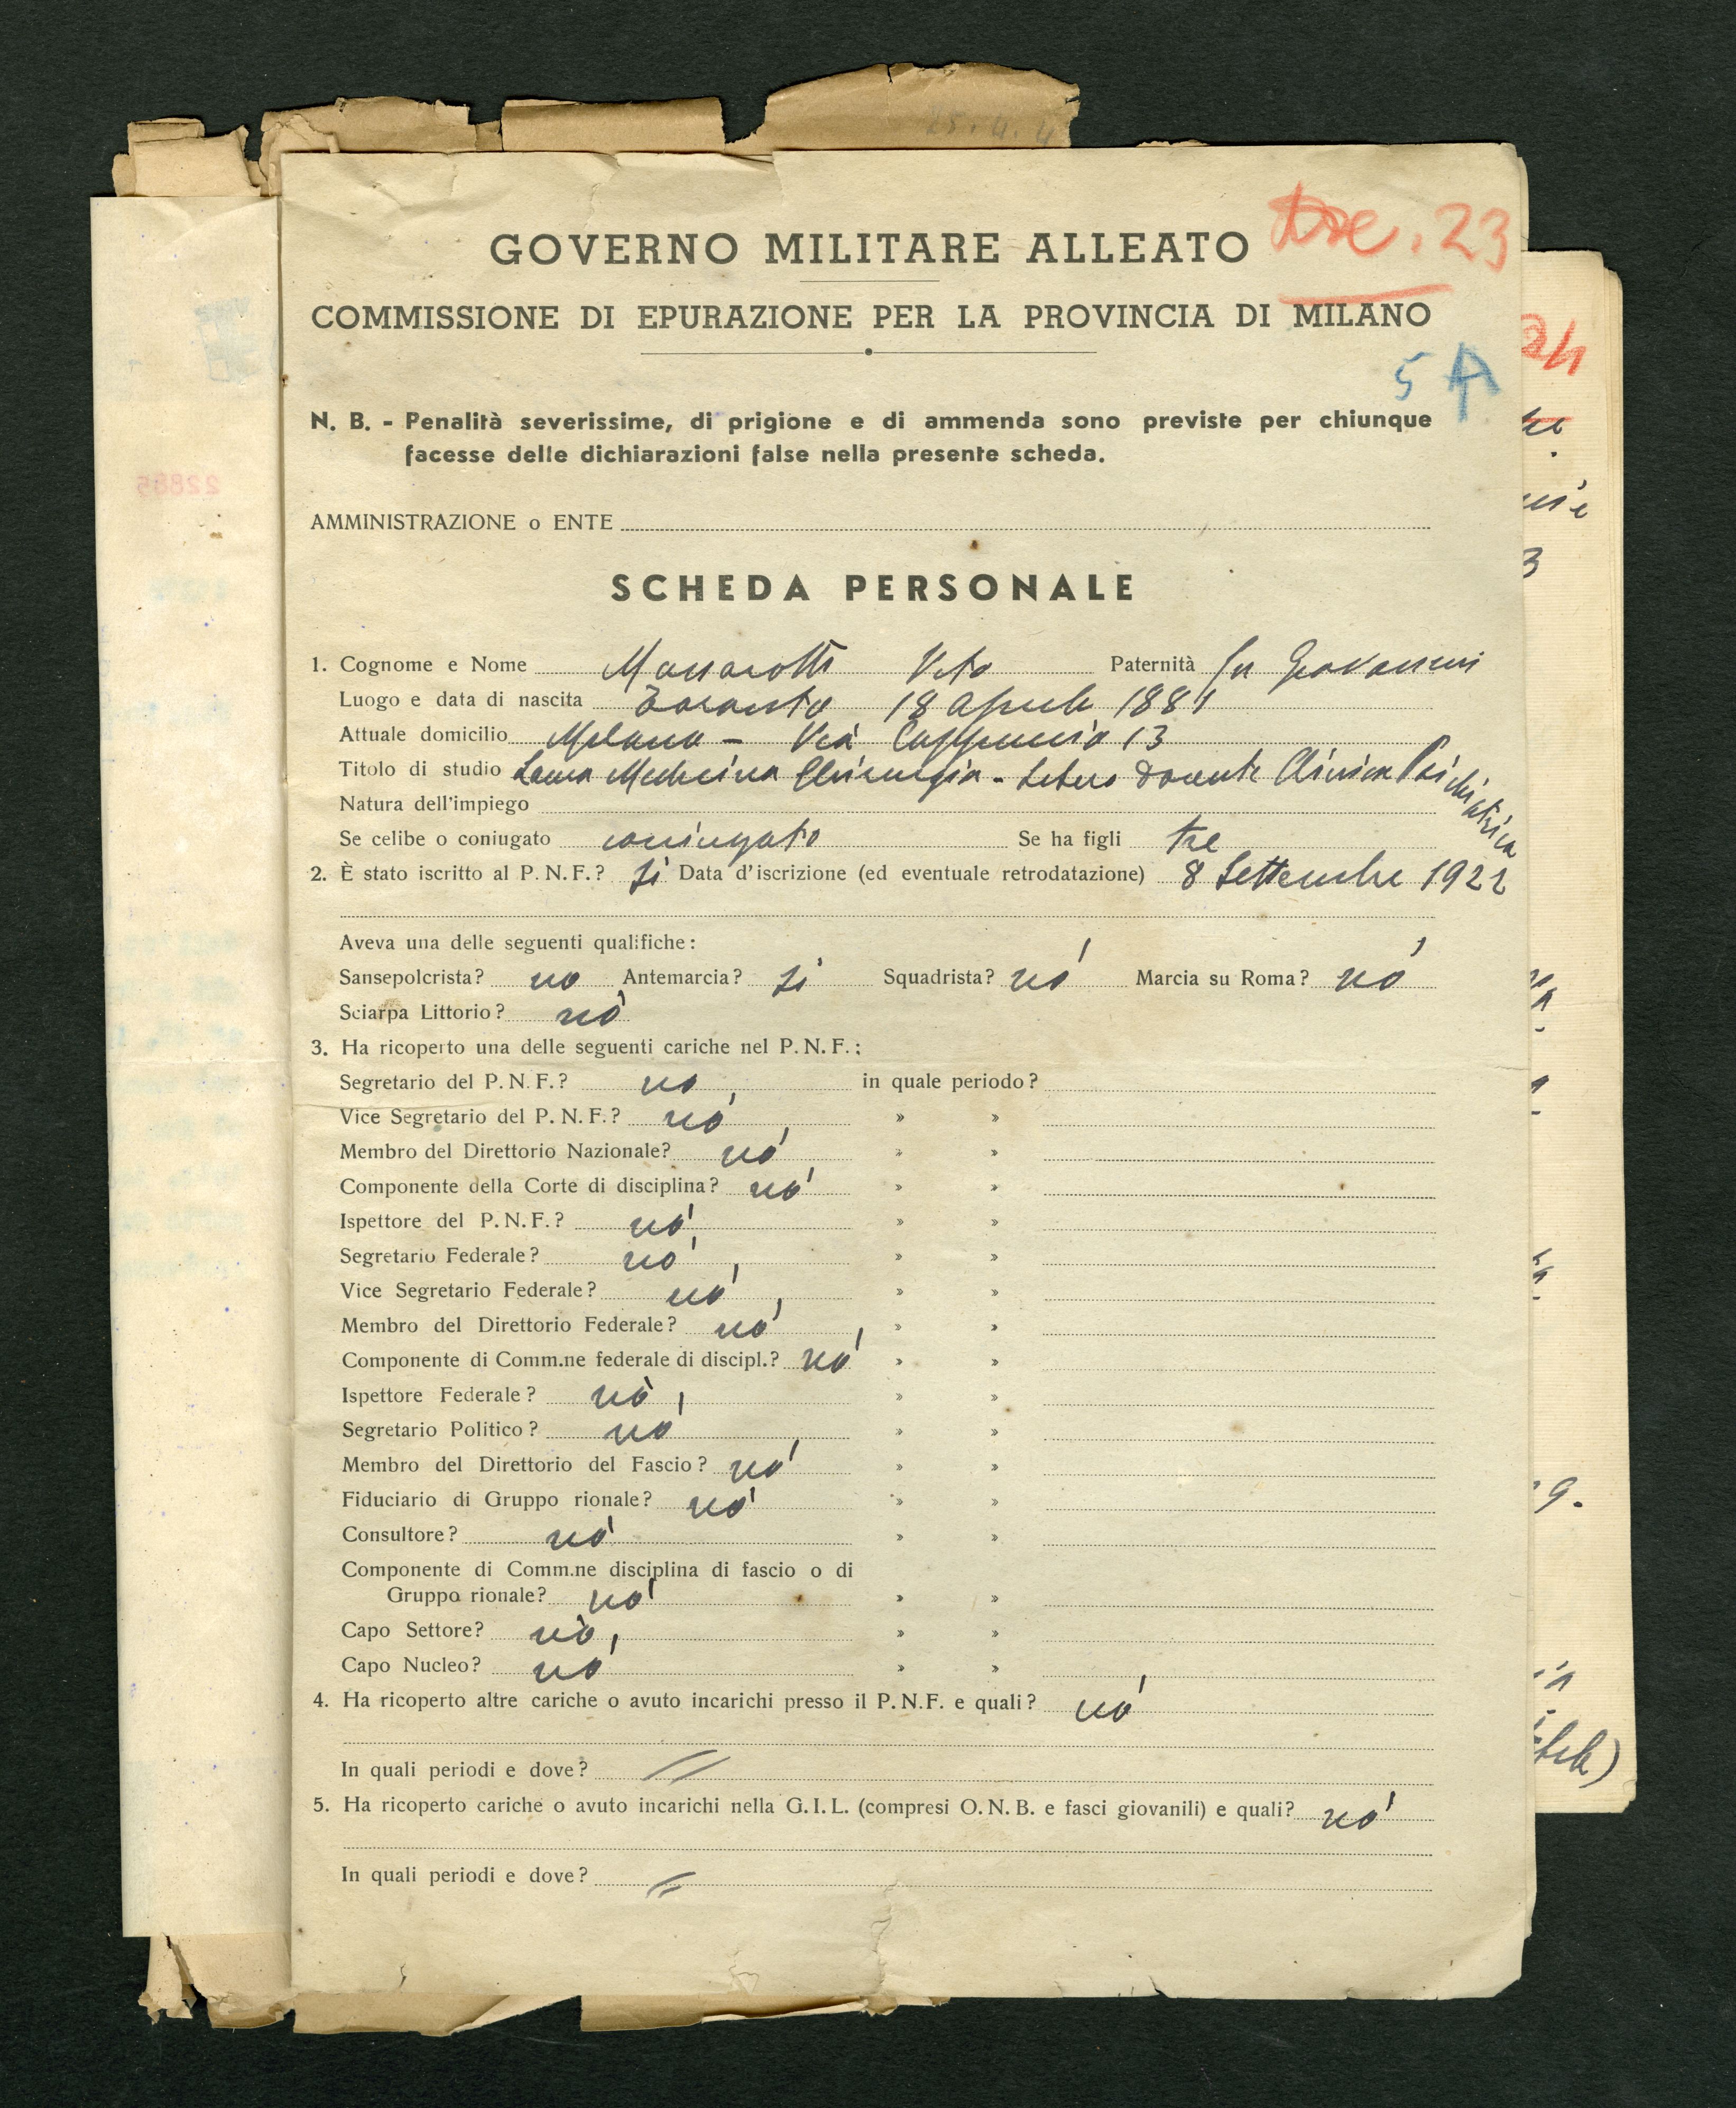 25.4.4
GOVERNO MILITARE ALLEATO
23
COMMISSIONE DI EPURAZIONE PER LA PROVINCIA DI MILANO
5 A
N. B. - Penalità severissime, di prigione e di ammenda sono previste per chiunque
facesse delle dichiarazioni false nella presente scheda.
22885
AMMINISTRAZIONE o ENTE
SCHEDA PERSONALE
1. Cognome e Nome Massarotti Vito Paternità fu Giovanni
Luogo e data di nascita Taranto 18 Aprile 1881
Attuale domicilio Milano - Via Cappuccio 13
Titolo di studio Laurea Medicina Chirurgia - Libero Docente Clinica Psichiatrica
Natura dell'impiego
Se celibe o coniugato coniugato Se ha figli tre
2. È stato iscritto al P. N. F.? Si Data d'iscrizione (ed eventuale retrodatazione) 8 Settembre 1922
Aveva una delle seguenti qualifiche:
Sansepolcrista? no Antemarcia? Si Squadrista? nò Marcia su Roma? nò
Sciarpa Littorio? nò
3. Ha ricoperto una delle seguenti cariche nel P. N. F.:
Segretario del P. N. F.? no in quale periodo?
Vice Segretario del P. N. F.? nò » »
Membro del Direttorio Nazionale? nò » »
Componente della Corte di disciplina? nò » »
Ispettore del P. N. F.? nò » »
Segretario Federale? nò » »
Vice Segretario Federale? nò » »
Membro del Direttorio Federale? nò » »
Componente di Comm.ne federale di discipl.? nò » »
Ispettore Federale? nò » »
Segretario Politico? nò » »
Membro del Direttorio del Fascio? nò » »
Fiduciario di Gruppo rionale? nò » »
Consultore? nò » »
Componente di Comm.ne disciplina di fascio o di
Gruppo rionale? nò » »
Capo Settore? nò » »
Capo Nucleo? nò » »
4. Ha ricoperto altre cariche o avuto incarichi presso il P. N. F. e quali? nò
In quali periodi e dove? //
5. Ha ricoperto cariche o avuto incarichi nella G. I. L. (compresi O. N. B. e fasci giovanili) e quali? nò
In quali periodi e dove? //